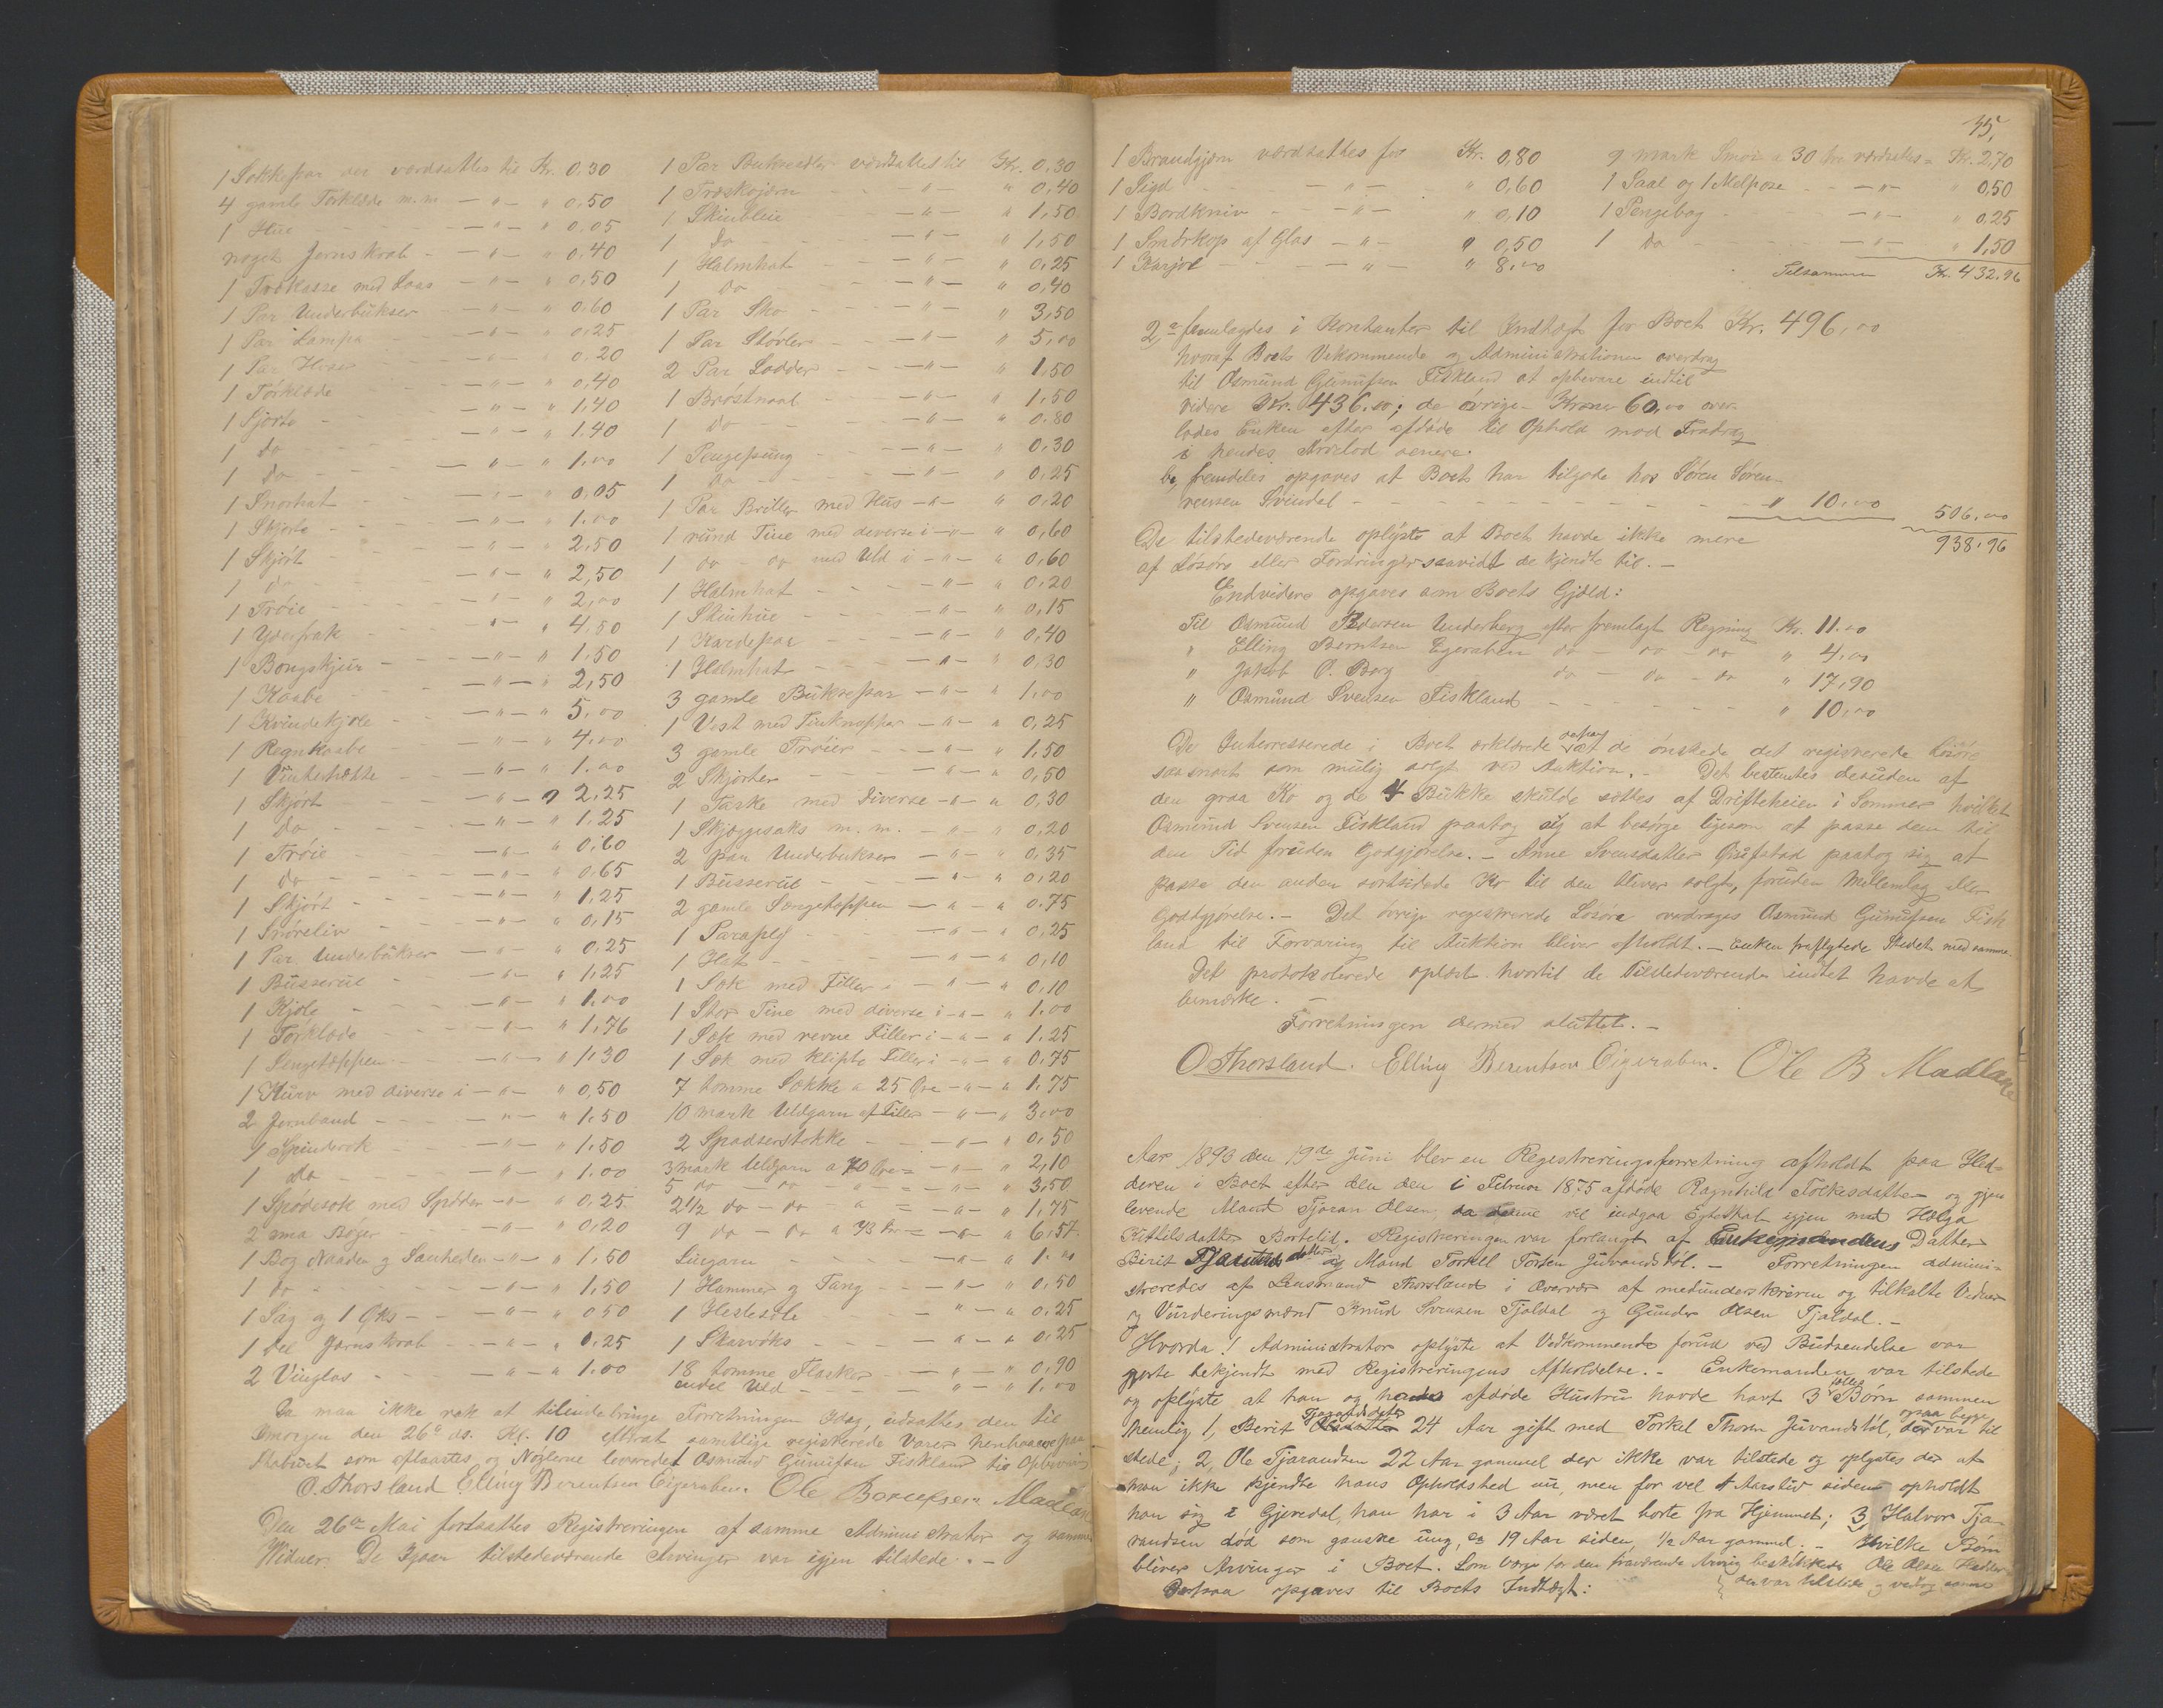 1 Sokkepar der værdsattes til Kr. 0,30
4 gamle Törklæde m.m — " — " 0,50
1 Hue — " — " 0,05
noget Jernskrab — " — " 0,40
1 Trækasse med Laas — " — " 0,50
1 Par Underbukser — " — " 0,60
1 Par Lamper — " — " 0,25
1 Par Hoser — " — " 0,20
1 Törklæde — " — " 0,40
1 Sjorte — " — " 1,40
1 do — " — " 1,40
1 do — " — " 1,00
1 Snorhat — " — " 0,05
1 Skjorte — " — " 1,00
1 Skjört — " — " 2,50
1 do — " — " 2,50
1 Tröie — " — " 2,00
1 Yderfrak — " — " 4,50
1 Bongskjur — " — " 1,50
1 Kaabe — " — " 2,50
1 Kvindekjole — " — " 5,00
1 Regnkaabe — " — " 4,00
1 Vinterhætte — " — " 1,00
1 Skjört — " — " 2,25
1 do — " — " 1,25
1 Tröie — " — " 0,60
1 do — " — " 0,65
1 Skjört — " — " 1,25
1 Snöreliv — " — " 0,15
1 Par Underbukser — " — " 0,25
1 Busserul — " — " 1,25
1 Kjole — " — " 1,00
1 Törklæde — " — " 1,76
1 Sengetæppen — " — " 1,30
1 Kurv med diverse i — " — " 0,50
2 Jernbaand — " — " 1,50
1 Spinderok — " — " 1,50
1 do — " — " 1,00
1 Spödesæk med Spöder — " — " 0,25
2 sma Bøger — " — " 0,20
1 Bog Naaden og Sanheden — " — " 1,50
1 do — " — " 1,50
1 Sag og 1 Øks — " — " 0,50
1 del Jarnskrab — " — " 0,25
2 Vinglas — " — " 1,00
1 Par Bukseseler værdsattes til Kr. 0,30
1 Træskojern — " — " 0,40
1 Skinbleie — " — " 1,50
1 do — " — " 1,50
1 Halmhat — " — " 0,25
1 do — " — " 0,40
1 Par Sko — " — " 3,50
1 Par Støvler — " — " 5,00
2 Par Lodder — " — " 1,50
1 Bröstnaal — " — " 1,50
1 do — " — " 0,80
1 Pengepung — " — " 0,30
1 do — " — " 0,25
1 Par Briller med Hus — " — " 0,20
1 rund Tine med diverse i — " — " 0,60
1 do — do med Uld i — " — " 0,60
1 Halmhat — " — " 0,20
1 Skinhue — " — " 0,15
1 Kardepar — " — " 0,40
1 Halmhat — " — " 0,30
3 gamle Buksepar — " — " 1,00
1 Vest med Tinknapper — " — " 0,25
3 gamle Trøier — " — " 1,50
2 Skjorter — " — " 0,50
1 Taske med diverse — " — " 0,30
1 Skjæggesaks m. m. — " — " 0,20
2 par Underbukser — " — " 0,35
1 Busserul — " — " 0,20
2 gamle Sengetæppen — " — " 0,75
1 Paraply — " — " 0,25
1 Hat — " — " 0,10
1 Sæk med Filler — " — " 0,10
1 Stor Tine med diverse i — " — " 1,00
1 Sæk med revne Filler i — " — " 1,25
1 Sæk med klipte Filler i — " — " 0,75
7 tomme Sække a 25 Øre — " — " 1,75
10 mark Uldgarn af Filler — " — " 3,00
2 Spadserstokke — " — " 0,50
3 mark Uldgarn a 70 Øre = — " — " 2,10
5 do — do — " — = — " — " 3,50
2 1/2 do — do — a = — " — " 1,75
9 do — do a 73 Øre = — " — " 6,57
Lingarn — " — " 1,00
1 Hammer og Tang — " — " 0,50
1 Hestesele — " — " 0,25
1 Skarvöks — " — " 0,25
18 tomme Flasker — " — " 0,90
endel Uld — " — " 1,00
Da man ikke rak at tilendebringe Forretningen idag, udsattes den til
imorgen den 26de ds. Kl. 10 efterat samtlige registrerede Varer henbares paa
Staburet som aflaastes og Nøglerne leveredes Osmund Gunufsen Fiskland til Opbevaring
O. Thorsland Elling Berentsen Eigeraben. Ole Berentsen Madland
Den 26de Mai fortsattes Registreringen af samme Administrator og samme
Vidner. De Igaar tilstedeværende Arvinger var igjen tilstede. —
75,
1 Brandjern værdsattes for Kr. 0,80
1 Sigd — " — " 0,60
1 Bordkniv — " — " 0,10
1 Smörkop af Glas — " — " 0,50
1 Karjol — " — " 8,00
9 mark Smör a 30 øre værdsattes = Kr. 2,70
1 Saal og 1 Melpose — " — " 0,50
1 Pengebog — " — " 0,25
1 do — " — " 1,50
Tilsammen Kr. 432,96
2, a fremlagdes i Kontanter til Indtægt for Boet Kr. 496,00
hvoraf Boets Vekommende og Administrationen overdrag
til Osmund Gunufsen Fiskland at opbevare indtil
videre Kr. 436.00; de øvrige Kroner 60,00 over-
lodes Enken efter afdøde til Ophold mod Fradrag
i hendes Arvelod senere.
b, fremdeles opgaves at Boet har tilgode hos Søren Søren-
rensen Svindal " 10,00 506,00
De tilstedeværende oplyste at Boet havde ikke mere 938,96
af Løsøre eller Fordringer saavidt de kjendte til. —
Endvidere opgaves som Boets Gjæld:
Til Osmund Pedersen Underberg efter fremlagt Regning Kr. 11.00
" Elling Berntsen Egeraben do — do — do " 4,00
" Jakob O. Berg do — do — do " 17,90
" Osmund Svensen Fiskland " 10,00
De Interesserede i Boet erklærede at de ønskede det registrerede Løsøre
saasnart som mulig solgt ved Auktion. — Det bestemtes desuden at
den graa Ko og de 4 Bukke skulde sættes af Drifteheien i Sommer hvilket
Osmund Svensen Fiskland paatog sig at besørge ligesom at passe dem til
den Tid foruden Godgjørelse. — Anne Svensdatter Øiufstad paatog sig at
passe den anden sortsidede Ko til den bliver solgt, foruden Mellemlag eller
Godtgjørelse. — Det øvrige registrerede Løsøre overdrages Osmund Gunufsen Fisk
land til Forvaring til Auktion bliver afholdt. — Enken fraflytede Stedet med samme.
Det protokolerede oplæst hvortil de Tilstedeværende indtet havde at
bemærke.
Forretningen dermed sluttet. —
O Thorsland. Elling Berentsen Eigeraben. Ole B Madland
Aar 1893 den 19de Juni blev en Registreringsforretning afholdt paa Hed-
deren i Boet efter den den 1 Februar 1875 afdøde Ragnhild Tolkesdatter og gjen
levende Mand Tjøran Olsen, da denne vil indgaa Egteskab igjen med Helga
Kittilsdatter Bortelid. Registreringen var forlangt af Enkemandens Datter
Birit Tjøransdatter og Mand Torkel Torsen Juvandstøl. — Forretningen admini-
streredes af Lensmand Thorsland i Overvær af medunderskreven og tilkalte Vidner
og Vurderingsmænd Knud Svensen Tjaldal og Gunder Olsen Tjaldal. —
Hvorda! Administrator oplyste at Vedkommende forud ved Budsendelse var
gjorte bekjendt med Registreringens Afholdelse. — Enkemanden var tilstede
og oplyste at han og hans afdøde Hustru havde havt 3 fælles Børn sammen
Nemlig 1, Berit Tjarandsdatter 24 Aar gift med Torkel Thorsen Juvandstøl, der var ogsaa begge til
stede; 2, Ole Tjarandsen 22 Aar gammel der ikke var tilstede og oplystes det at
man ikke kjendte hans Opholdssted nu, men for vel 1 Aarstid siden opholdt
han sig i Gjeredal, han har i 3 Aar været borte fra Hjemmet; 3, Halvor Tja-
randsen død som ganske ung, ca 19 Aar siden, 1/2 Aar gammel. — Hvilke Børn
bliver Arvinger i Boet. Som Værge for den fraværende Arving beskikkedes Ole Olsen Hedder
der var tilstede og vedtog samme
Derpaa opgaves til Boets Indtægt: